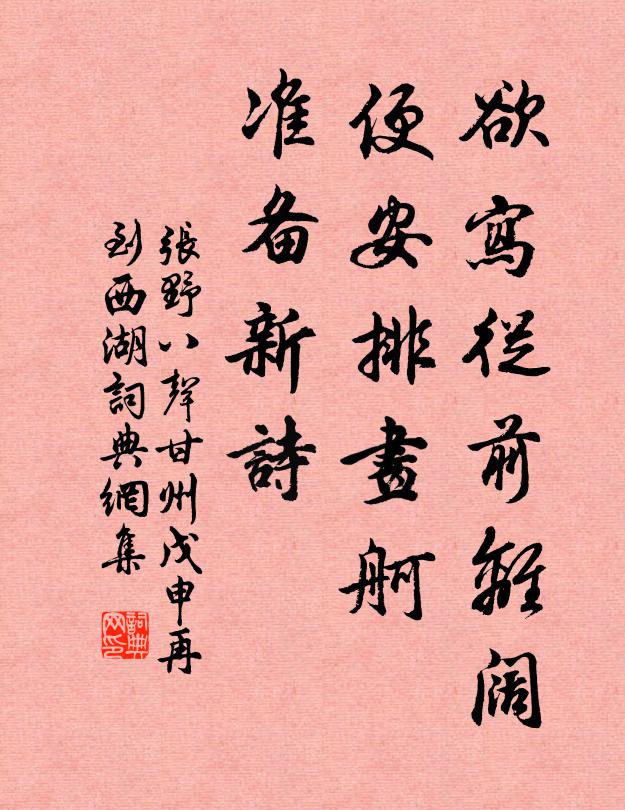 欲寫從前離阔
便安排畫舸
准备新詩
張野八聲甘州戊申再
到西湖詞典網集
詞典网印